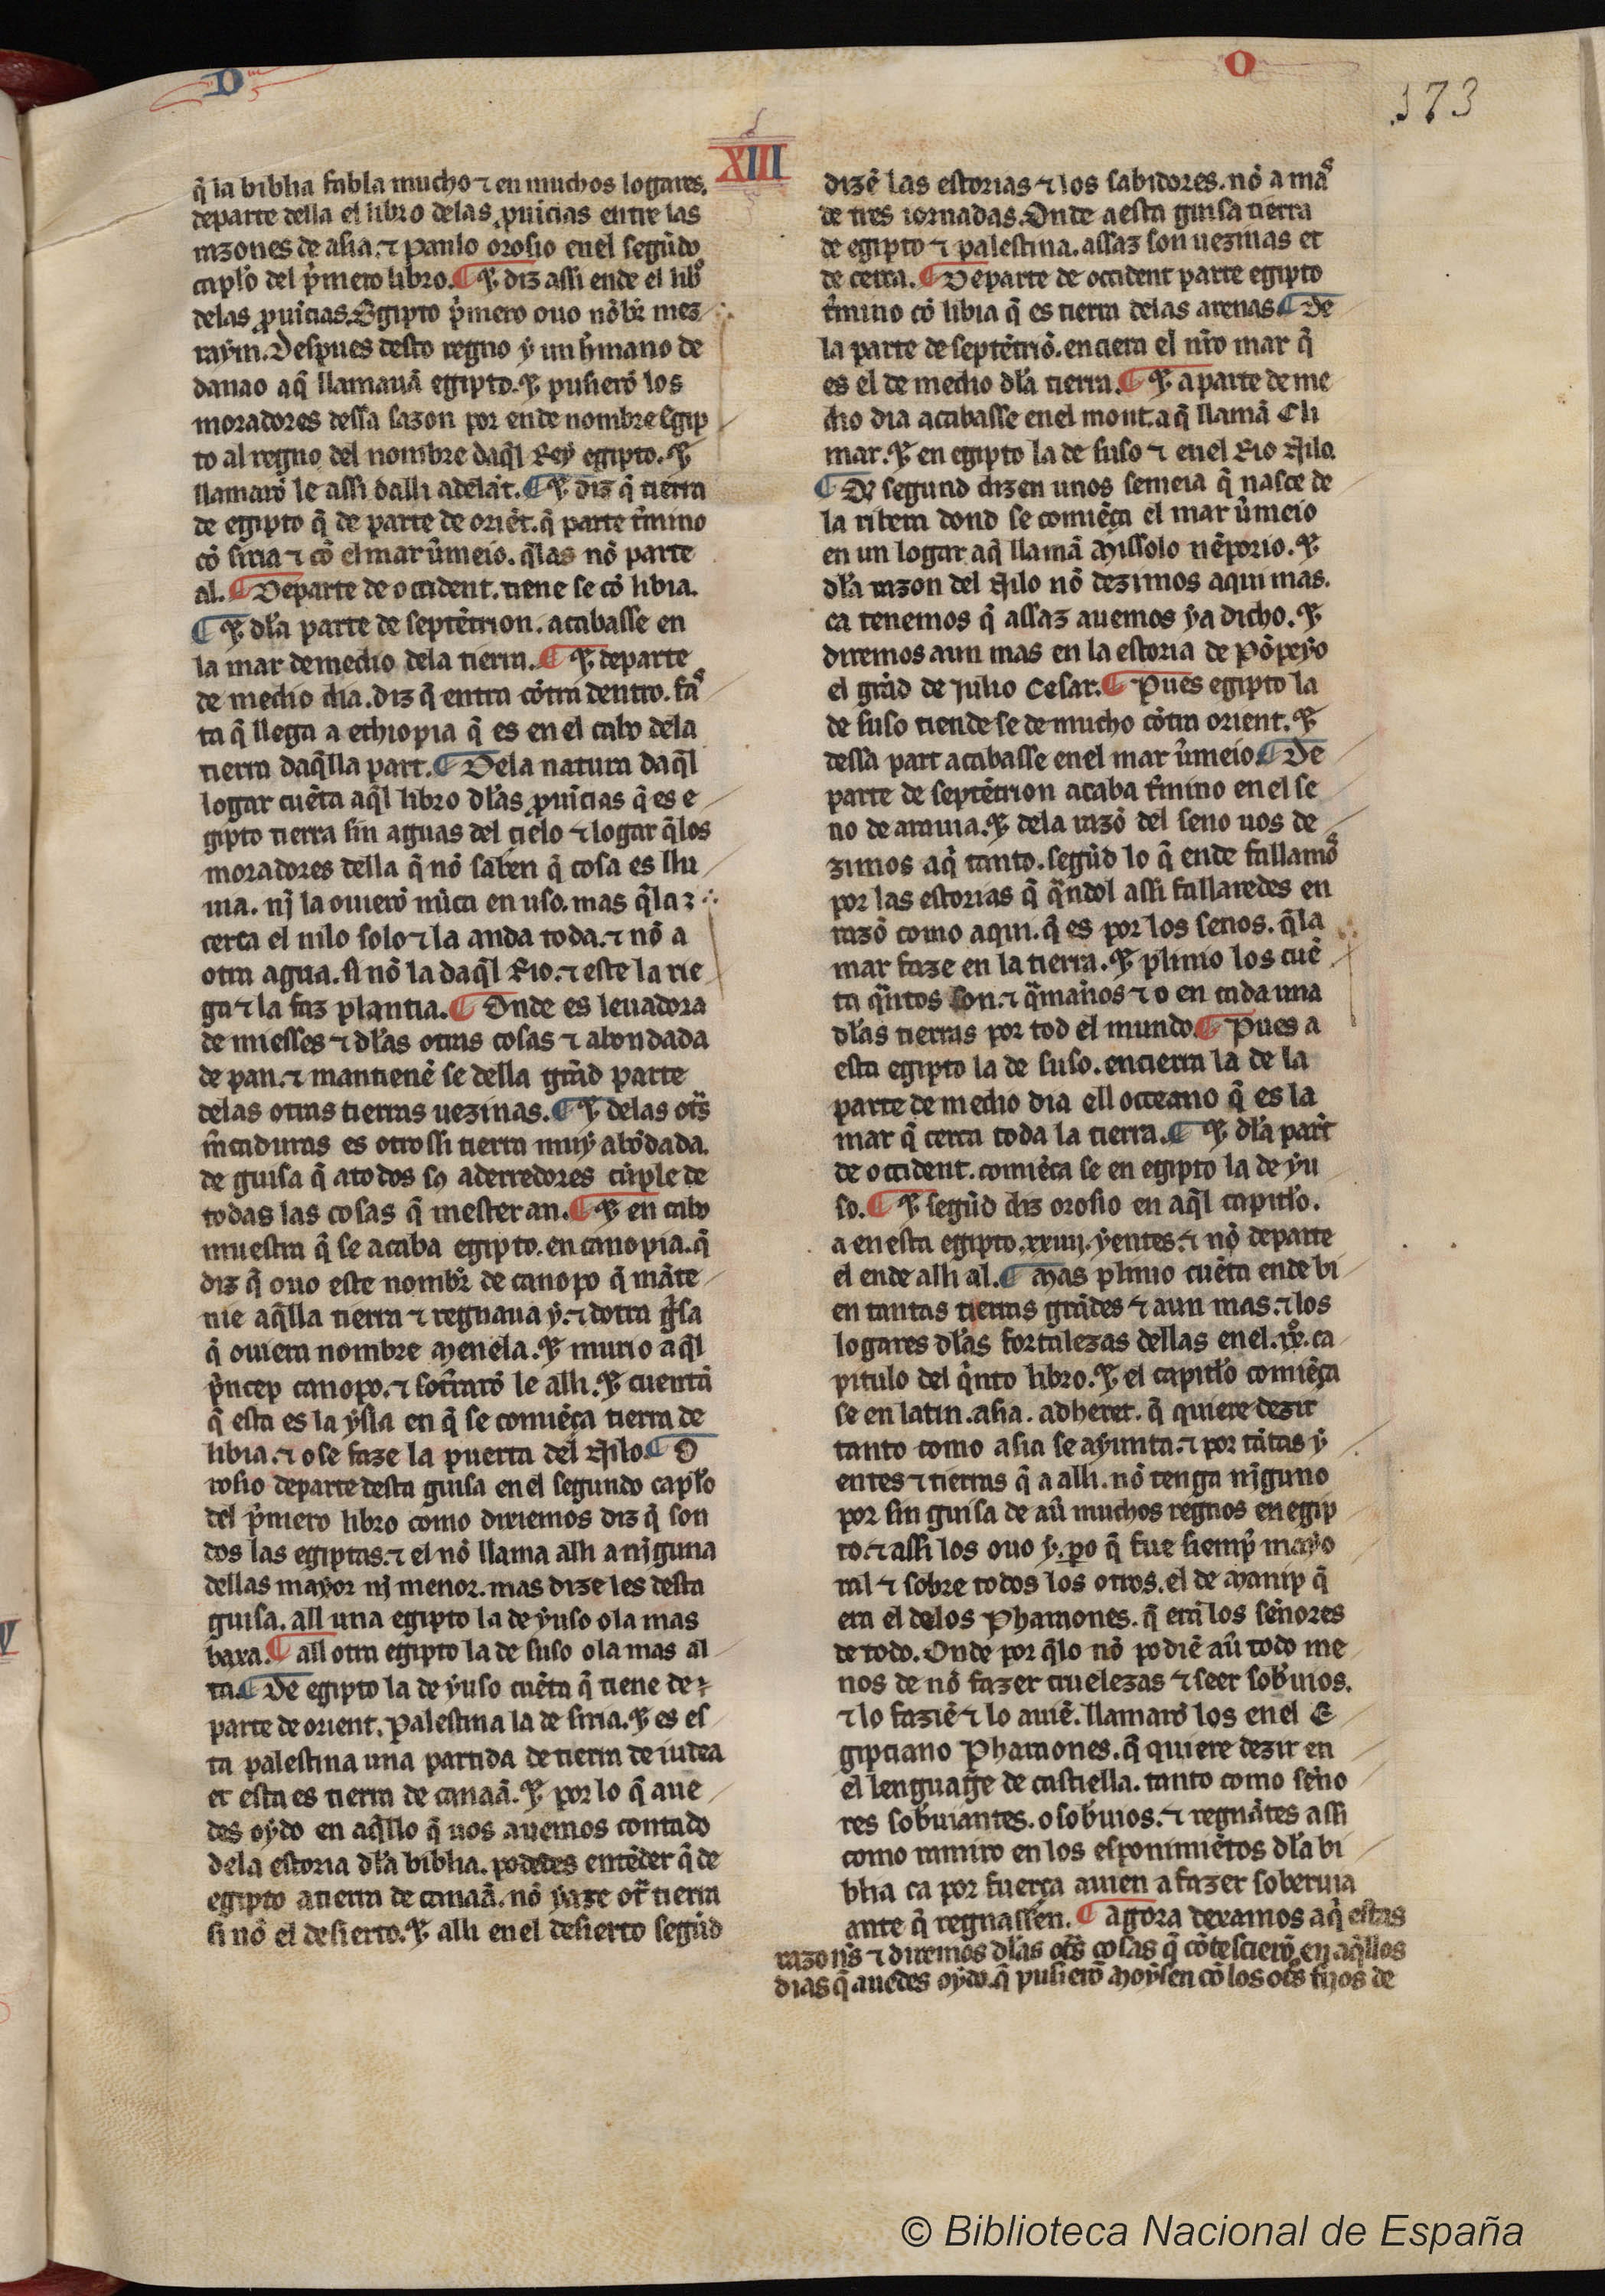 D
O
173
XIII
q̃ la biblia fabla mucho ⁊ en muchos logares.
departe della el libro delas ꝓuĩcias entre las
razones de asia. ⁊ Paulo orosio enel segũdo
capł̃o del p̃mero libro. ¶ ⁊ diz assi ende el libº
delas ꝓuĩcias. Egipto p̃mero ouo nõbr̃ mez
raẏm. Despues desto regno ẏ un h̃mano de
danao aq̃ llamauã egipto. ⁊ pusierõ los
moradores dessa sazon por ende nombre Egip
to al regno del nombre daq̃l Reẏ egipto. ⁊
llamarõ le assi dalli adelãt. ¶ ⁊ diz q̃ tierra
de egipto q̃ de parte de oriẽt. q̃ parte t̃mino
cõ siria ⁊ cõ el mar ũmeio. q̃las nõ parte
al. ¶ De parte de occident. tiene se cõ libia.
¶ ⁊ dł̃a parte de septẽtrion. acabasse en
la mar de medio dela tierra. ¶ ⁊ de parte
de medio dia. diz q̃ entra cõtra dentro. faº
ta q̃ llega a ethiopia q̃ es en el cabo dela
tierra daq̃lla part. ¶ Dela natura daq̃l
logar cuẽta aq̃l libro dł̃as ꝓuĩcias q̃ es e
gipto tierra sin aguas del cielo ⁊ logar q̃los
moradores della q̃ nõ saben q̃ cosa es llu
uia. nj la ouierõ nũca en uso. mas q̃la
cerca el nilo solo ⁊ la anda toda. ⁊ nõ a
otra agua. si nõ la daq̃l Rio. ⁊ este la rie
ga ⁊ la faz plantia. ¶ Onde es leuadora
de miesses ⁊ dł̃as otras cosas ⁊ abondada
de pan. ⁊ mantienẽ se della grãd parte
delas otras tierras uezinas. ¶ ⁊ delas otr̃s
m̃caduras es otrossi tierra muẏ abõdada.
de guisa q̃ atodos sꝯ aderredores cũple de
todas las cosas q̃ mester an. ¶ ⁊ en cabo
muestra q̃ se acaba egipto. en canopia. q̃
diz q̃ ouo este nombr̃ de canopo q̃ mãte
nie aq̃lla tierra ⁊ regnaua ẏ. ⁊ dotra g̃sa
q̃ ouiera nombre Menela. ⁊ murio aq̃l
p̃ncep canopo. ⁊ sot̃rarõ le alli. ⁊ cuentã
q̃ esta es la ẏsla en q̃ se comiẽça tierra de
libia. ⁊ o se faze la puerta del Nilo. ¶ O
rosio departe desta guisa en el segundo capł̃o
del p̃mero libro como diriemos diz q̃ son
dos las egiptas. ⁊ el nõ llama alli a njguna
dellas mayor nj menor. mas dize les desta
guisa. all una egipto la de ẏuso o la mas
baxa. ¶ all otra egipto la de suso o la mas al
ta. ¶ De egipto la de ẏuso cuẽta q̃ tiene de
parte de orient. Palestina la de siria. ⁊ es es
ta palestina una partida de tierra de iudea
et esta es tierra de canaã. ⁊ por lo q̃ aue
des oẏdo en aq̃llo q̃ uos auemos contado
dela estoria dł̃a biblia. podedes entẽder q̃ de
egipto a tierra de canaã. nõ ẏaze otr̃ tierra
si nõ el desierto. ⁊ alli en el desierto segũd
dizẽ las estorias ⁊ los sabidores. nõ a maˢ
de tres iornadas. Onde a esta guisa tierra
de egipto ⁊ palestina. assaz son uezinas et
de cerca. ¶ De parte de occident parte egipto
t̃mino cõ libia q̃ es tierra delas arenas ¶ De
la parte de septẽtriõ. encierra el nr̃o mar q̃
es el de medio dł̃a tierra. ¶ ⁊ a parte de me
dio dia acabasse enel mont. aq̃ llamã Cli
mar. ⁊ en egipto la de suso ⁊ enel Rio Nilo.
¶ De segund dizen unos semeia q̃ nasce de
la ribera dond se comiẽça el mar ũmeio
en un logar aq̃ llamã Missolo nẽporio. ⁊
dł̃a razon del Nilo nõ dezimos aqui mas.
ca tenemos q̃ assaz auemos ẏa dicho. ⁊
diremos aun mas en la estoria de Põpeẏo
el grãd de Julio Cesar. ¶ Pues egipto la
de suso tiende se de mucho cõtra orient. ⁊
dessa part acabasse enel mar ũmeio. ¶ De
parte de septẽtrion acaba t̃mino en el se
no de arauia. ⁊ dela razõ del seno uos de
zimos aq̃ tanto. segũd lo q̃ ende fallamoˢ
por las estorias q̃ q̃ndol assi fallaredes en
razõ como aqui. q̃ es por los senos. q̃la
mar faze en la tierra. ⁊ plinio los cuẽ
ta q̃ntos son. ⁊ q̃maños ⁊ o en cada una
dł̃as tierras por tod el mundo. ¶ Pues a
esta egipto la de suso. encierra la de la
parte de medio dia ell occeano q̃ es la
mar q̃ cerca toda la tierra. ¶ ⁊ dł̃a part
de occident. comiẽça se en egipto la de ẏu
so. ¶ ⁊ segũd diz orosio en aq̃l capitł̃o.
a en esta egipto. xxiiij. ẏentes. ⁊ nõ departe
el ende alli al. ¶ Mas plinio cuẽta ende bi
en tantas tierras grãdes ⁊ aun mas. ⁊ los
logares dł̃as fortalezas dellas enel. xº. ca
pitulo del q̃nto libro. ⁊ el capitł̃o comiẽça
se en latin. asia. adheret. q̃ quiere dezir
tanto como asia se aẏunta. ⁊ por tãtas ẏ
entes ⁊ tierras q̃ a alli. nõ tenga njguno
por sin guisa de aũ muchos regnos en egip
to. ⁊ assi los ouo ẏ. ꝑo q̃ fue siemp̃ maẏo
ral ⁊ sobre todos los otros. el de Manip q̃
era el delos Pharaones. q̃ erã los señores
de todo. Onde por q̃lo nõ podiẽ aũ todo me
nos de nõ fazer cruelezas ⁊ seer sobũios.
⁊ lo faziẽ ⁊ lo auiẽ. llamarõ los en el E
gipciano Pharaones. q̃ quiere dezir en
el lenguage de castiella. tanto como seño
res sobũiantes. o sobũios. ⁊ regnãtes assi
como ramiro en los esponimiẽtos dł̃a bi
blia ca por fuerça auien a fazer soberuia
ante q̃ regnassen. ¶ agora dexamos aq̃ estas
razonẽs ⁊ diremos dł̃as otr̃s cosas q̃ cõtescierõ en aq̃llos
dias q̃ auedes oẏdo. q̃ pusierõ Moẏsen cõ los otr̃s fijos de
V
© Biblioteca Nacional de España